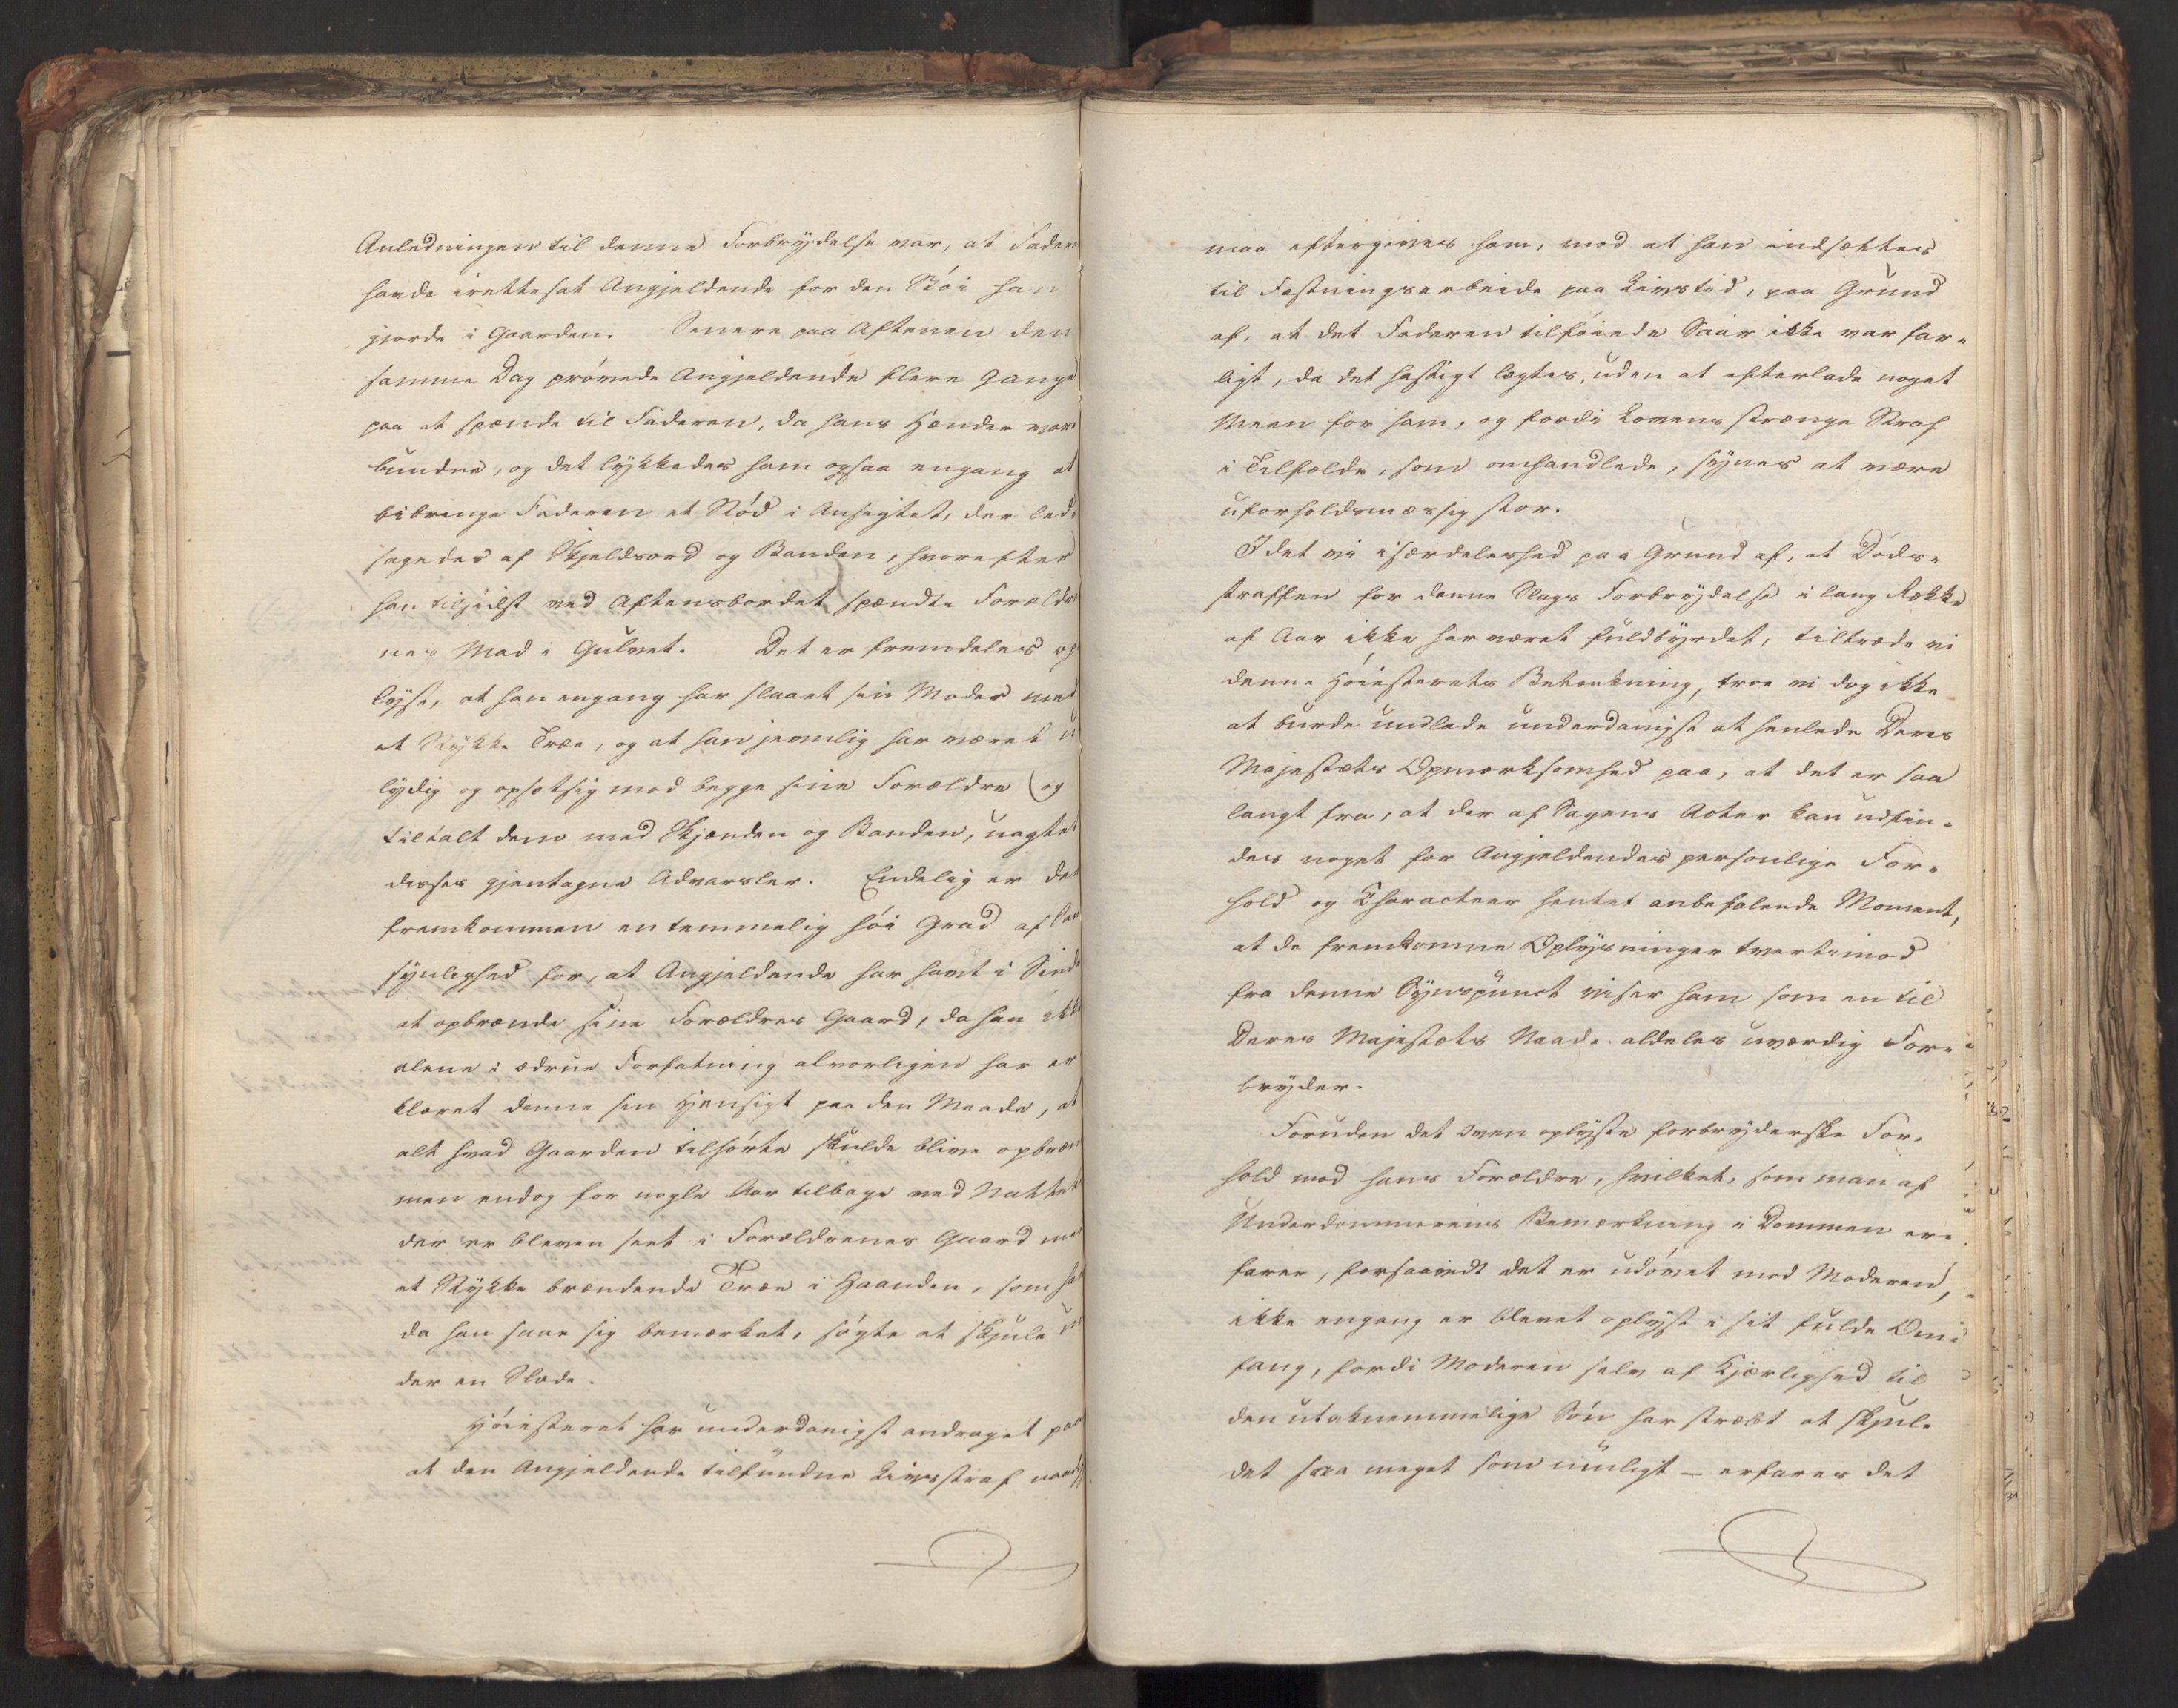 Anledningen til denne Forbrydelse var, at Faderen
havde irettesat Angjeldende for den Støi han
gjorde i Gaarden. Senere paa Aftenen den
samme Dag prøvede Angjeldende flere Gange
paa at spænde til Faderen, da hans Hænder vare
bundne, og det lykkedes ham ogsaa engang at
bibringe Faderen et Stød i Ansigtet, der led-
sagedes af Skjeldsord og Banden, hvorefter
han tilsidst ved Aftensbordet spændte Forældre
nes Mad i Gulvet. Det er fremdeles op
lyst, at han engang har slaaet sin Moder med
et Stykke Træe, og at han jevnlig har været u
lydig og opsetsig mod begge sine Forældre (og
tiltalt dem med Skjænden og Banden, uagtet
disses gjentagne Advarsler. Endelig er der
fremkommen en temmelig høi Grad af San
synlighed for, at Angjeldende har havt i Sinde
at opbrænde sine Forældres Gaard, da han ikke
alene i ædrue Forfatning alvorligen har er
klæret denne sin Hensigt paa den Maade, at
alt hvad Gaarden tilhørte skulde blive opbræn
men endog for nogle Aar tilbage ved Nattet
der er bleven seet i Forældrenes Gaard med
et Stykke brændende Træe i Haanden, som han
da han saae sig bemærket, søgte at skjule un
der en Slæde.
Høiesteret har underdanigst andraget paa
at den Angjeldende tilfundne Livsstraf naadigst
maa eftergives ham, mod at han indsættes
til Festningsarbeide paa Livstid, paa Grund
af, at det Faderen tilføiede Saar ikke var far-
ligt, da det hastigt lægtes, uden at efterlade noget
Meen for ham, og fordi Lovens strænge Straf
i Tilfælde, som omhandlede, synes at være
uforholdsmæssig stor.
Idet vi isærdeleshed paa Grund af, at Døds-
straffen for denne Slags Forbrydelse i lang Række
af Aar ikke har været fuldbyrdet, tiltræde vi
denne Høiesterets Betænkning, troe vi dog ikke
at burde undlade underdanigst at henlede Deres
Majestæts Opmærksomhed paa, at det er saa
langt fra, at der af Sagens Acter kan udfin-
des noget for Angjeldendes personlige For-
hold og Characteer hentet anbefalende Moment,
at de fremkomne Oplysninger tvertimod
fra denne Synspunct viser ham som en til
Deres Majestæts Naade aldeles uværdig For-
bryder.
Foruden det oven oplyste forbryderske For-
hold mod hans Forældre, hvilket, som man af
Underdommerens Bemærkning i Dommen er-
farer, forsaavidt det er udøvet mod Moderen,
ikke engang er blevet oplyst i sit fulde Om-
fang, fordi Moderen selv af Kjærlighed til
den utaknemmelige Søn har stræbt at skjule
det saa meget som muligt – erfares det